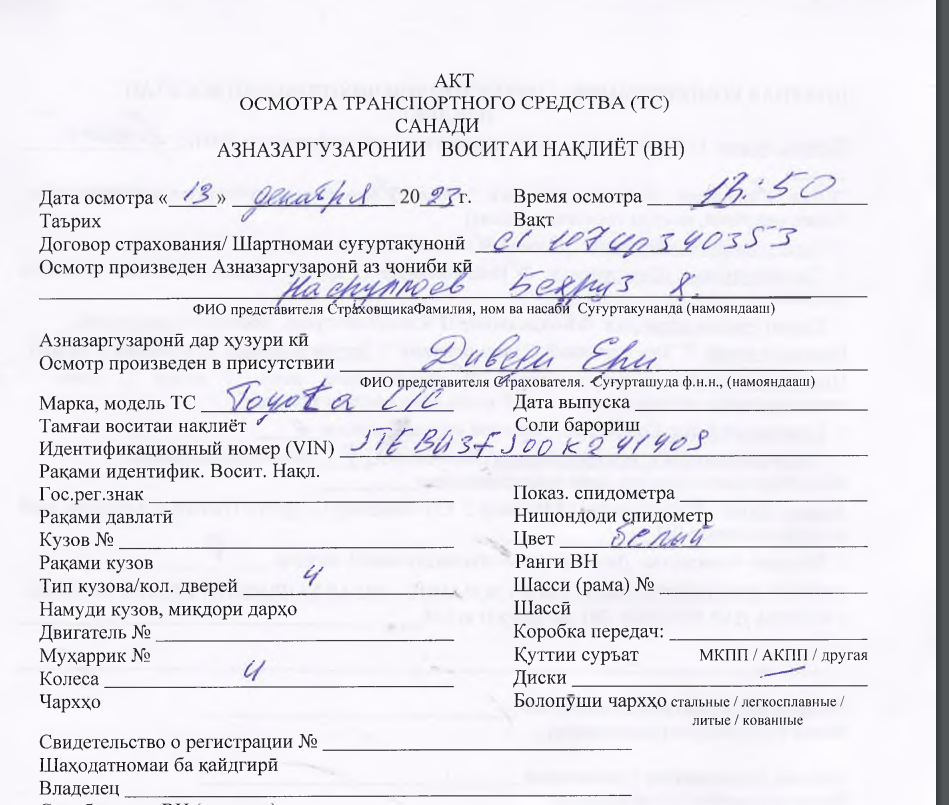 АКТ
ОСМОТРА ТРАНСПОРТНОГО СРЕДСТВА (ТС)
САНАДИ
АЗНАЗАРГУЗАРОНИИ ВОСИТАИ НАҚЛИЁТ (ВН)
Дата осмотра « 13 » декабря 2023г. Время осмотра 50
Таърих Вақт
Договор страхования/ Шартномаи суғуртакунонӣ
Осмотр произведен Азназаргузаронӣ аз ҷониби кӣ
Насруллоев Бехруз Х.
ФИО представителя СтраховщикаФамилия, ном ва насаби Суғуртакунанда (намояндааш)
Азназаргузаронӣ дар ҳузури кӣ
Осмотр произведен в присутствии Диведи Ери
ФИО представителя Страхователя. Суғурташуда ф.н.н., (намояндааш)
Марка, модель ТС Toyota Дата выпуска
Тамғаи воситаи нақлиёт Соли барориш
Идентификационный номер (VIN)
Рақами идентифик. Восит. Нақл.
Гос.рег.знак Показ. спидометра
Рақами давлатӣ Нишондоди спидометр
Кузов № Цвет белый
Рақами кузов Ранги ВН
Тип кузова/кол. дверей 4 Шасси (рама) №
Намуди кузов, миқдори дарҳо Шассӣ
Двигатель № Коробка передач:
Муҳаррик № Қуттии суръат МКПП / АКПП / другая
Колеса 4 Диски
Чархҳо Болопӯши чархҳо стальные / легкосплавные /
литые / кованные
Свидетельство о регистрации №
Шаҳодатномаи ба қайдгирӣ
Владелец